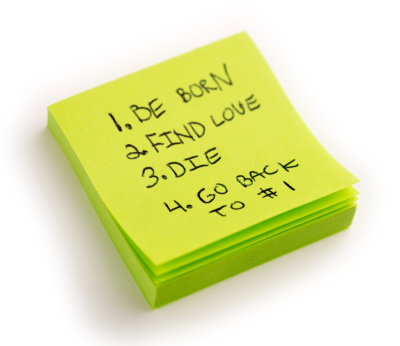 1. BE BORN
2. FIND LOVE
3. DIE
4. GO BACK
TO #1